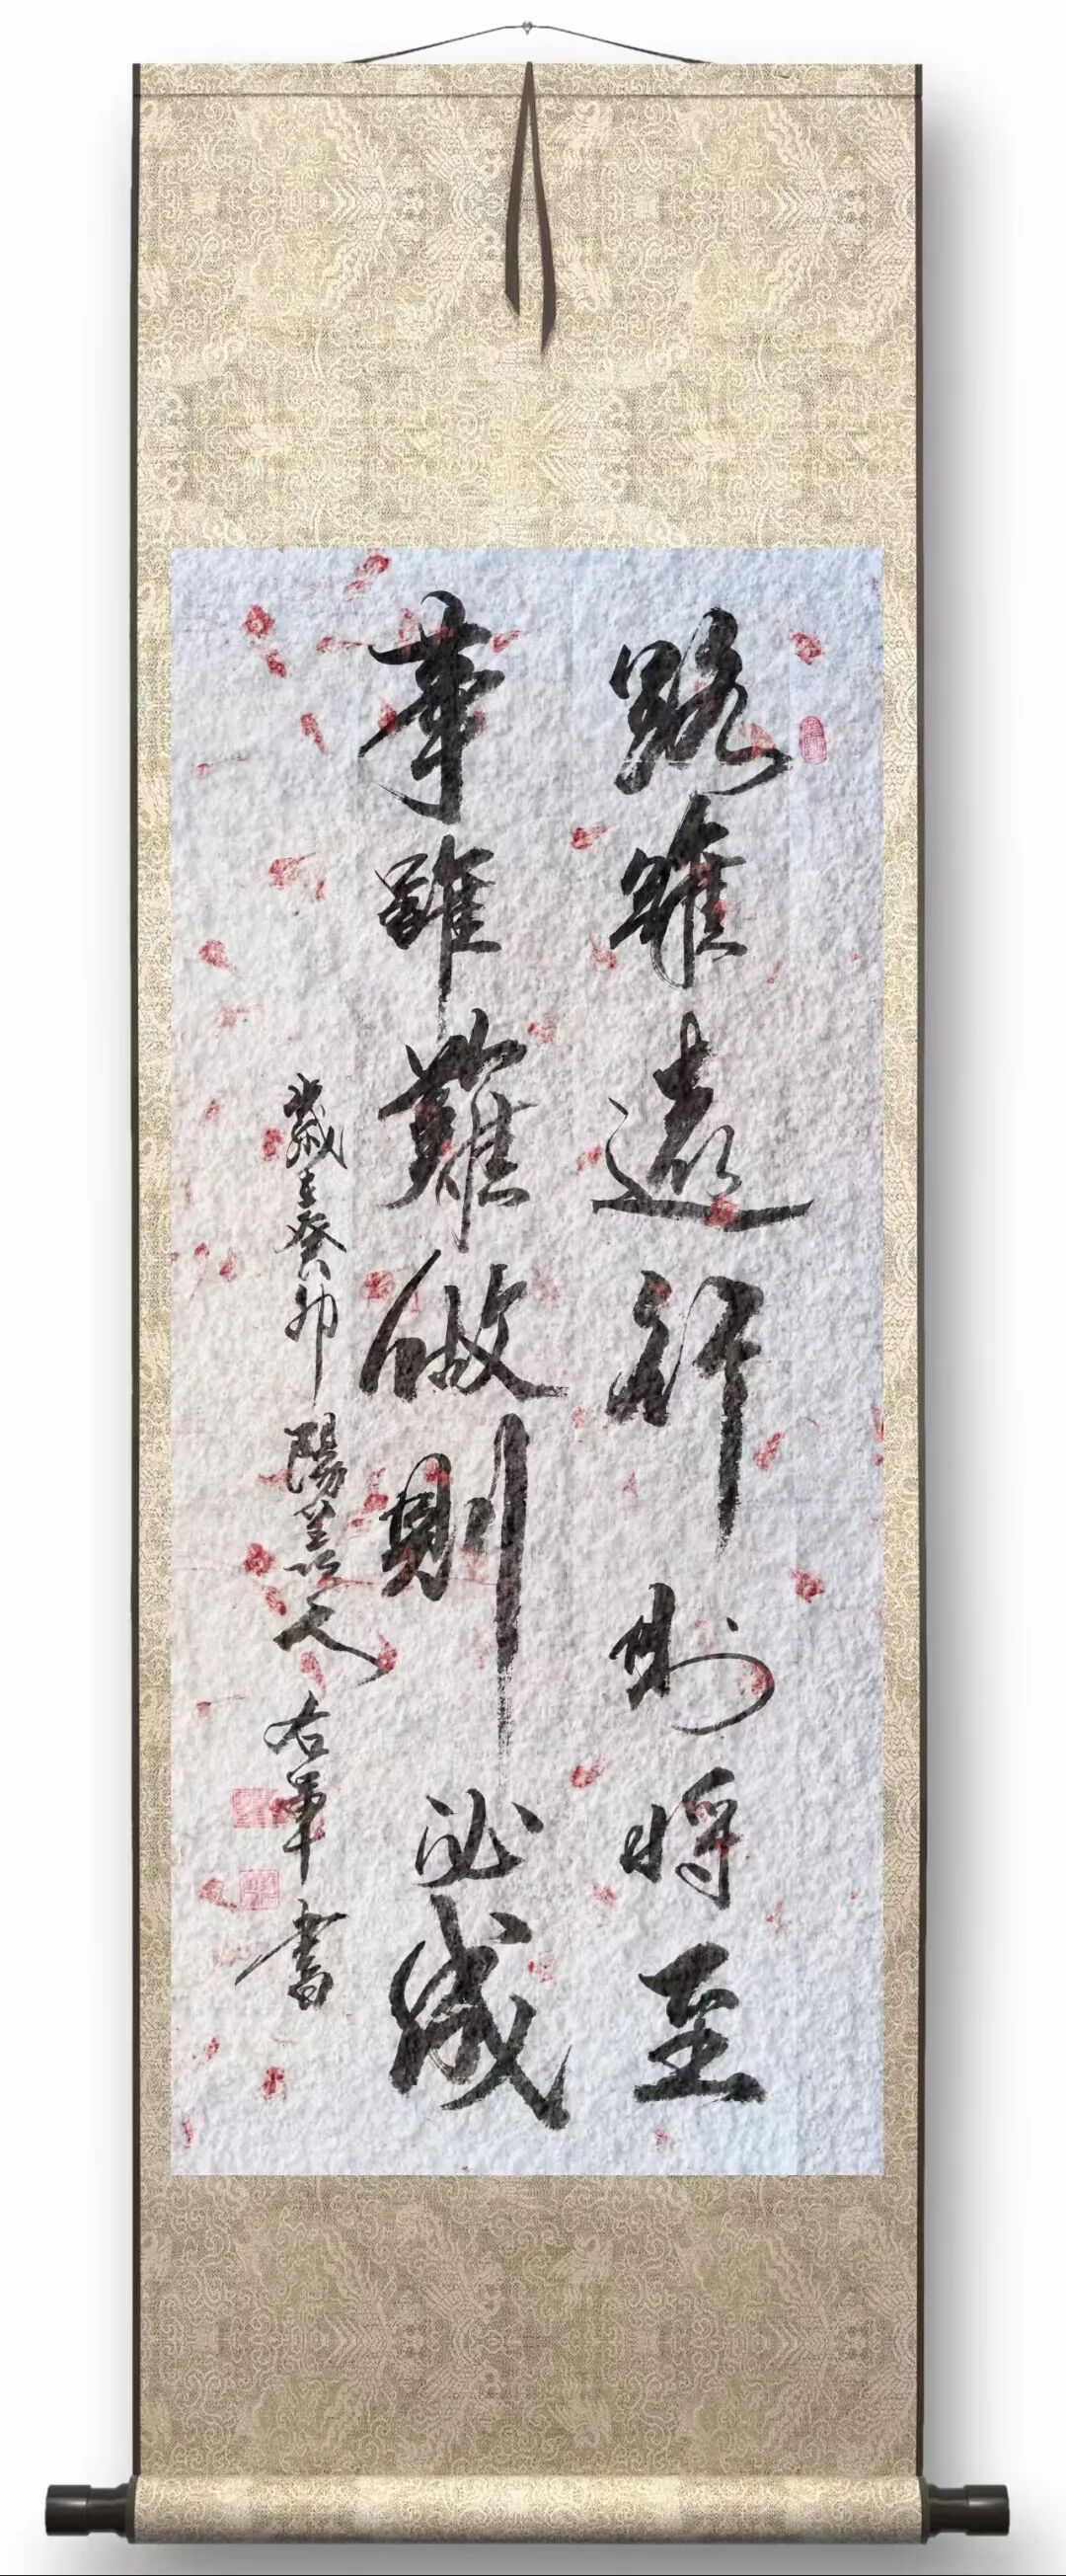 路雖遠行則將至
事雖難做則必成
歲在癸卯陽羨人右軍書